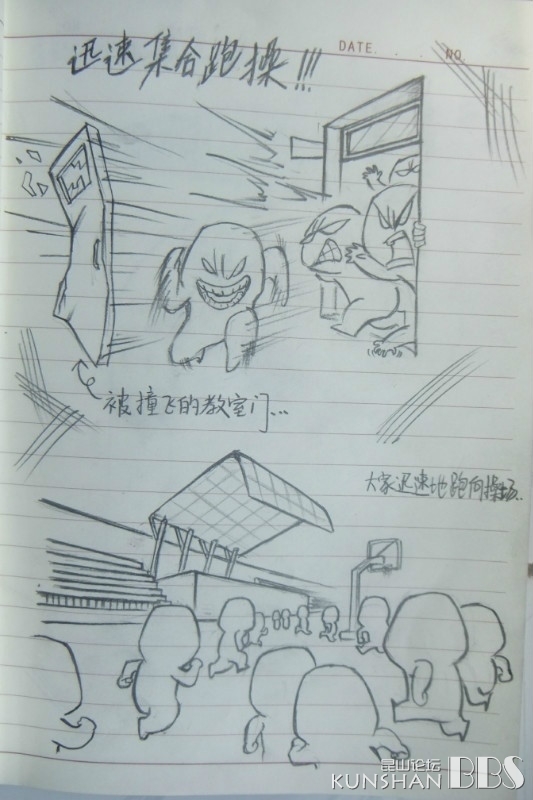 DATE. . . . NO.
迅速集合跑操!!!
被撞飞的教室门...
大家迅速地跑向操场..
昆山论坛
KUNSHAN BBS